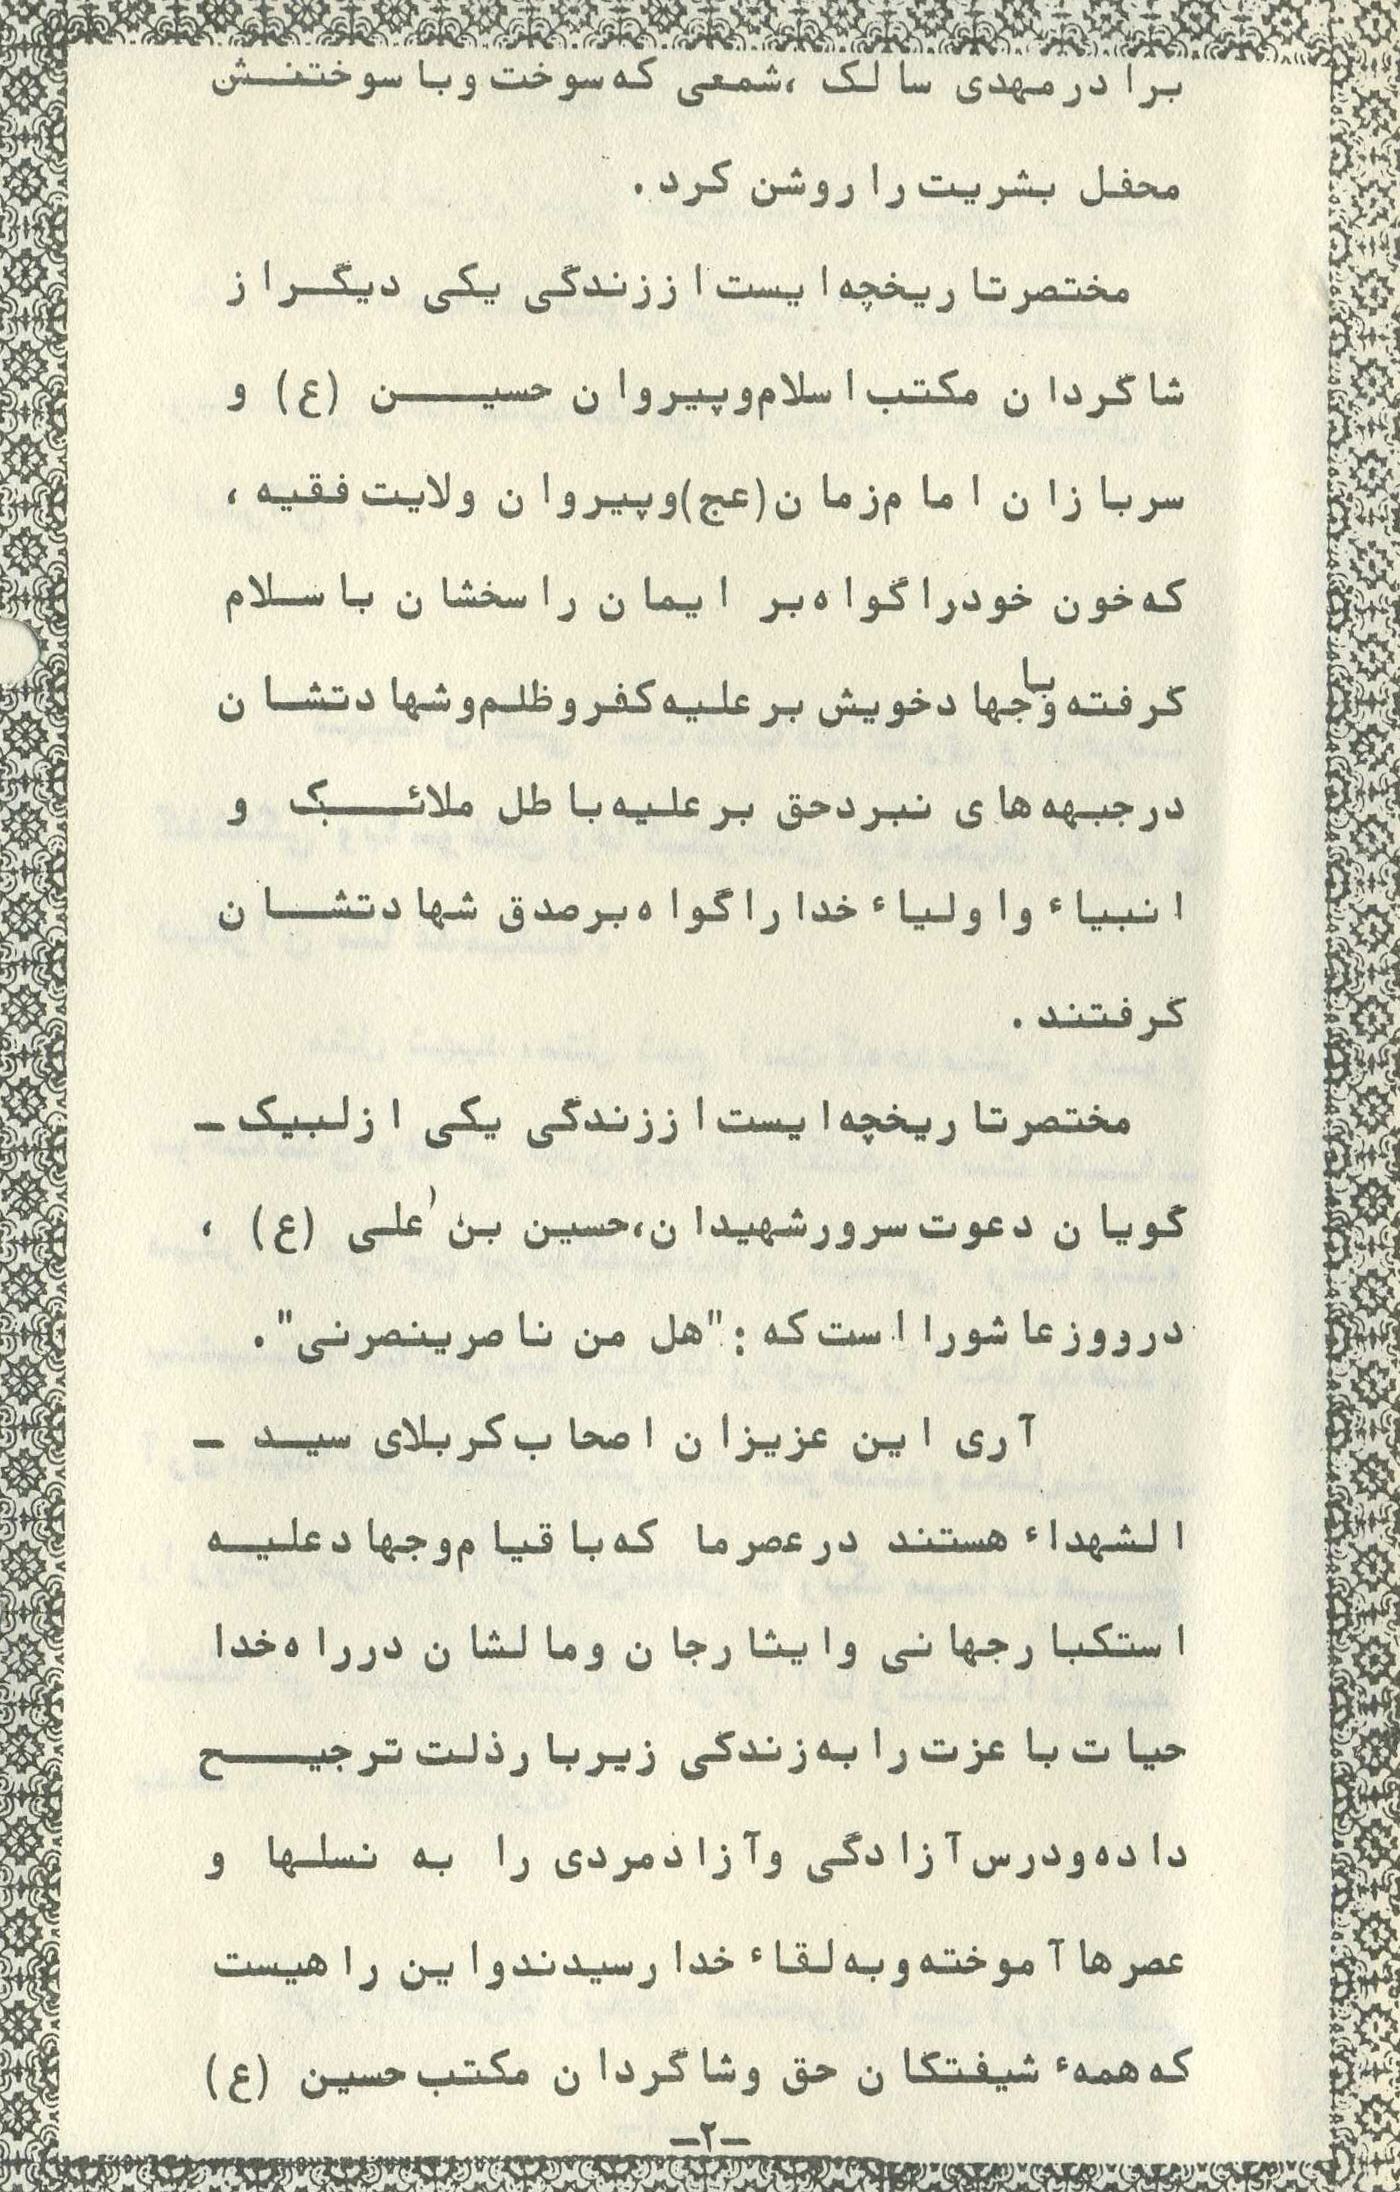 برادر مهدی سالک ،شمعی که سوخت و با سوختنش
محفل بشریت را روشن کرد .
مختصر تاریخچه ایست از زندگی یکی دیگر از
شاگردان مکتب اسلام و پیروان حسین (ع) و
سربازان امام زمان (عج) و پیروان ولایت فقیه ،
که خون خود را گواه بر ایمان راسخشان باسلام
گرفته و با جهاد خویش بر علیه کفر و ظلم و شهادتشان
در جبهه های نبرد حق بر علیه باطل ملائک و
انبیاء و اولیاء خدا را گواه بر صدق شهادتشان
گرفتند .
مختصر تاریخچه ایست از زندگی یکی از لبیک ـ
گویان دعوت سرور شهیدان ،حسین بن علی (ع) ،
در روز عاشورا است که : "هل من ناصر ینصرنی" .
آری این عزیزان اصحاب کربلای سید ـ
الشهداء هستند در عصر ما که با قیام و جهاد علیه
استکبار جهانی و ایثار جان و مالشان در راه خدا
حیات با عزت را به زندگی زیر بار ذلت ترجیح
داده و درس آزادگی و آزاد مردی را به نسلها و
عصرها آموخته و به لقاء خدا رسیدند و این راهیست
که همهٔ شیفتگان حق و شاگردان مکتب حسین (ع)
ـ۲ـ